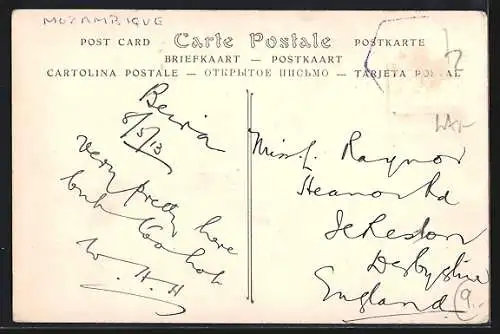 MOZAMBIQUE
POST CARD Carte Postale POSTKARTE
BRIEFKAART — POSTKAART
CARTOLINA POSTALE — ОТКРЫТОЕ ПИСЬМО — TARJETA POSTAL
Beira
8/5/13
very pretty here
but too hot
W. H. H
Miss L Raynor
Heanor Rd
Ilkeston
Derbyshire
England
9.-